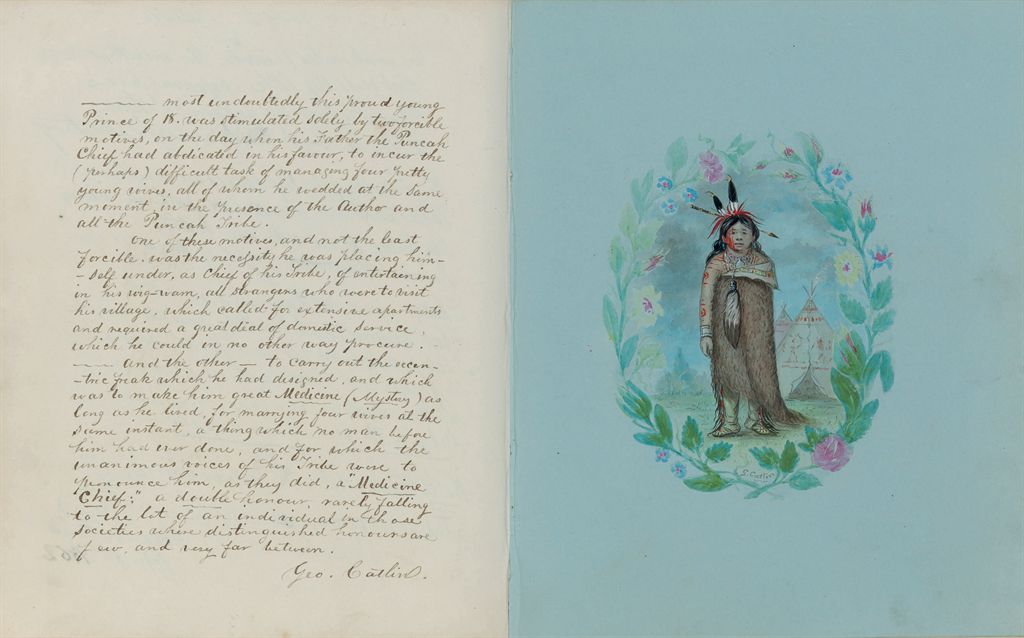 ——— most undoubtedly this proud young
Prince of 18. was stimulated solely by two forcible
motives, on the day when his Father the Puncah
Chief had abdicated in his favour, to incur the
(perhaps) difficult task of managing four pretty
young wives, all of whom he wedded at the same
moment, in the presence of the Author and
all the Puncah Tribe.
One of these motives, and not the least
forcible. was the necessity he was placing him-
-self under, as Chief of his Tribe, of entertaining
in his wig-wam, all strangers who were to visit
his village, which called for extensive apartments
and required a great deal of domestic service,
which he could in no other way procure. -
—— and the other — to carry out the eccen-
-tric freak which he had designed, and which
was to make him great Medicine (Mystery) as
long as he lived, for marrying four wives at the
same instant, a thing which no man before
him had ever done, and for which the
unanimous voices of his Tribe were to
pronounce him, as they did, a "Medicine
Chief;" a double honour, rarely falling
to the lot of an individual in those
societies where distinguished honours are
few, and very far between.
Geo. Catlin.
G. Catlin